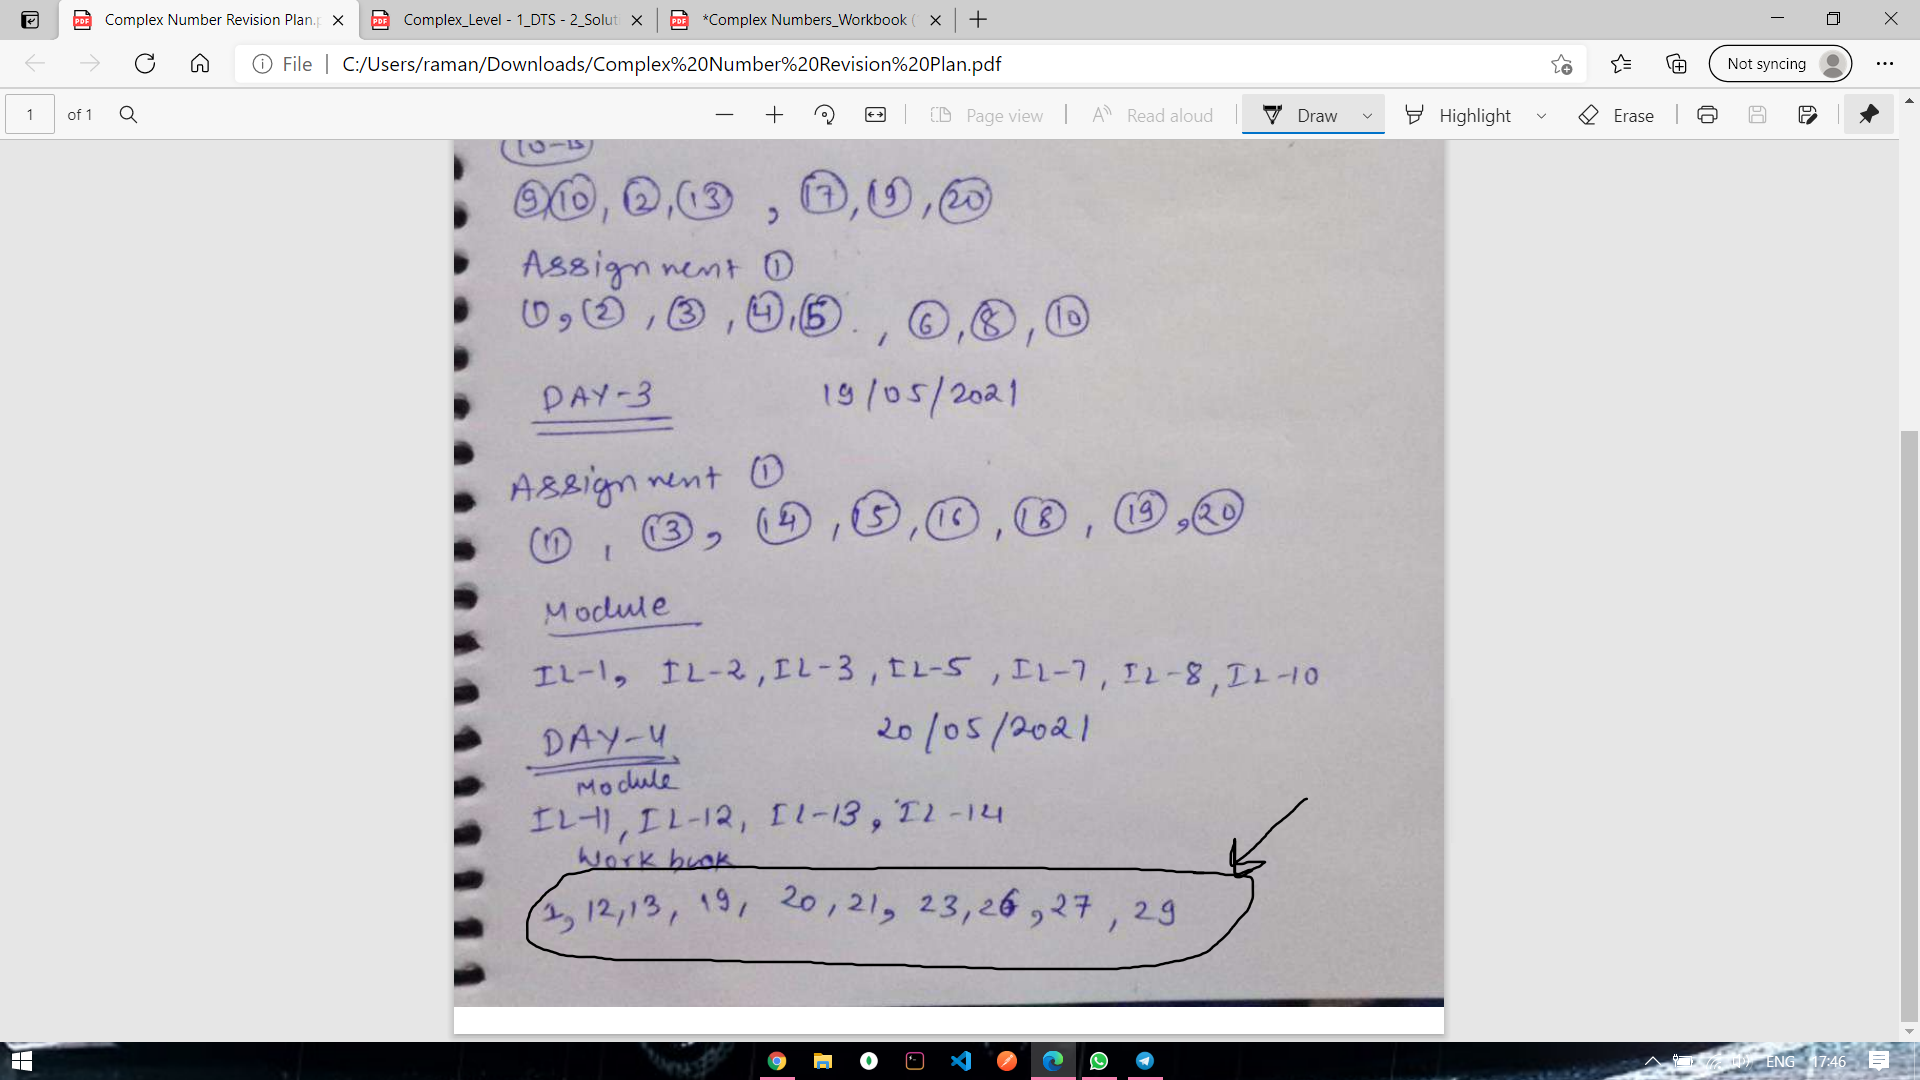 Complex Number Revision Plan.p
Complex_Level - 1_DTS - 2_Soluti
*Complex Numbers_Workbook (
File
C:/Users/raman/Downloads/Complex%20Number%20Revision%20Plan.pdf
Not syncing
1 of 1
Page view
Read aloud
Draw
Highlight
Erase
9, 10, 2, 13, 17, 19, 20
Assignment 1
1, 2, 3, 4, 5, 6, 8, 10
DAY-3 19/05/2021
Assignment 1
11, 13, 14, 15, 16, 18, 19, 20
Module
IL-1, IL-2, IL-3, IL-5, IL-7, IL-8, IL-10
DAY-4 20/05/2021
Module
IL-11, IL-12, IL-13, IL-14
Work book
1, 12, 13, 19, 20, 21, 23, 26, 27, 29
ENG
17:46